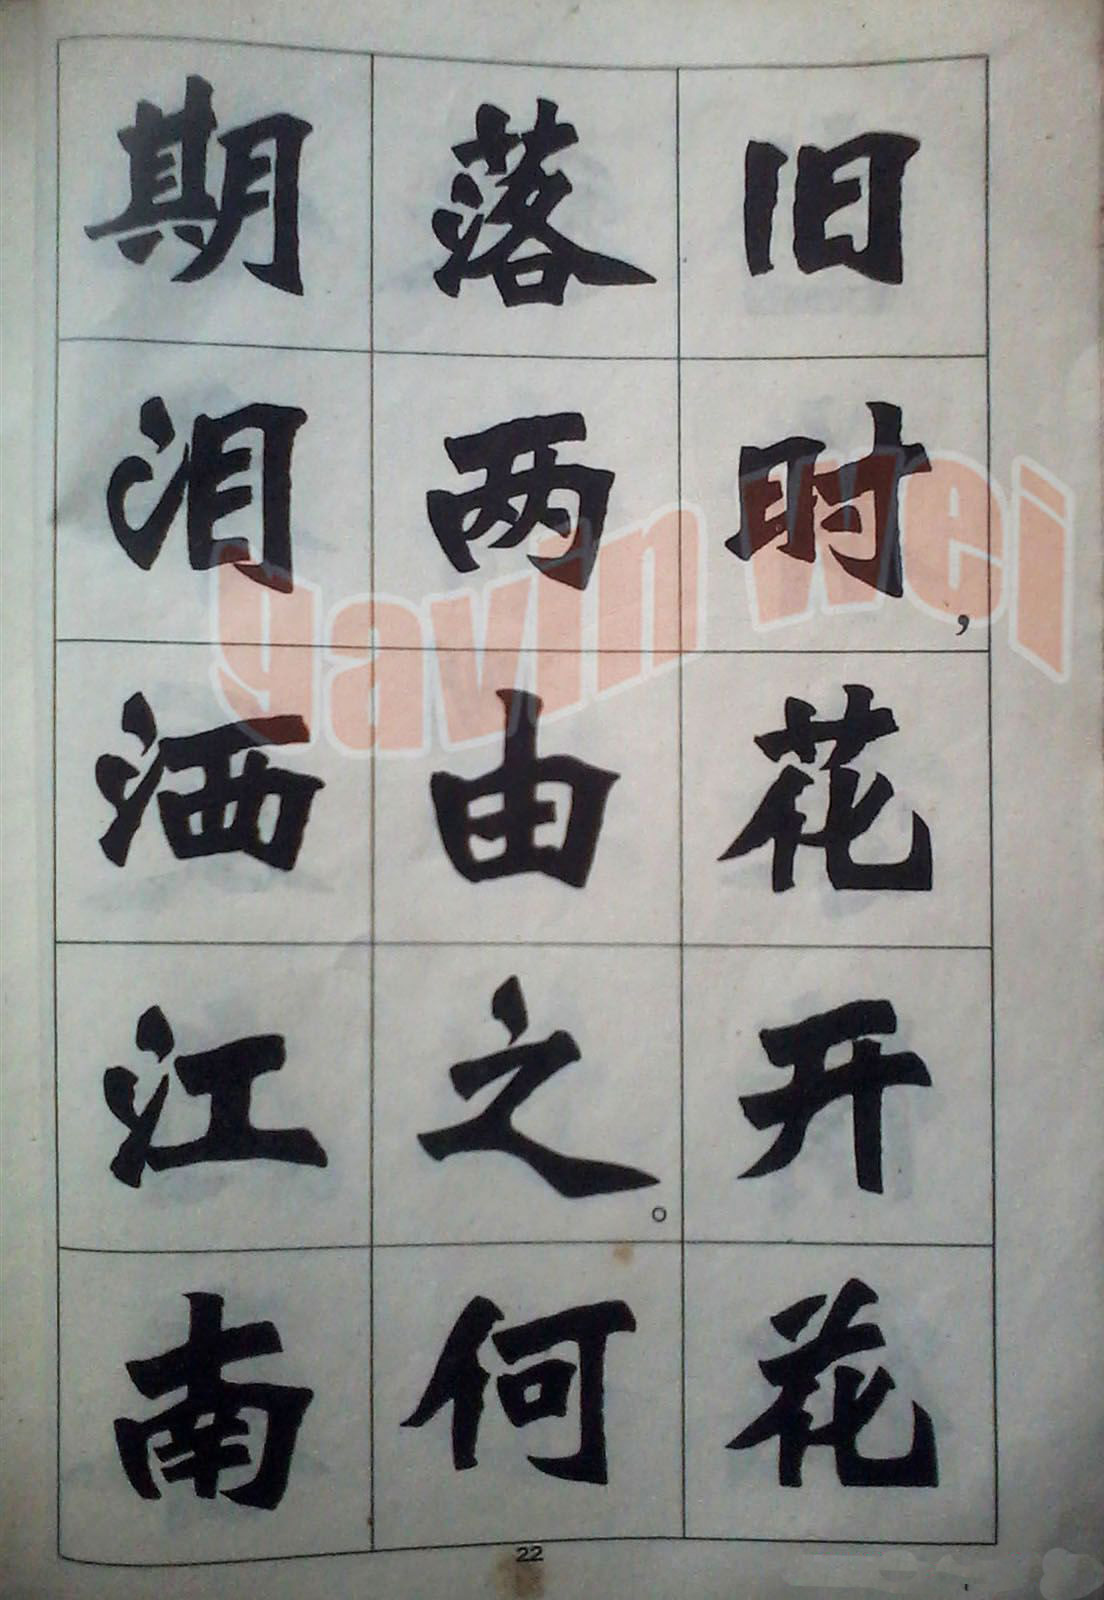 旧时，花开花
落两由之。何
期泪洒江南
22
gavin wei